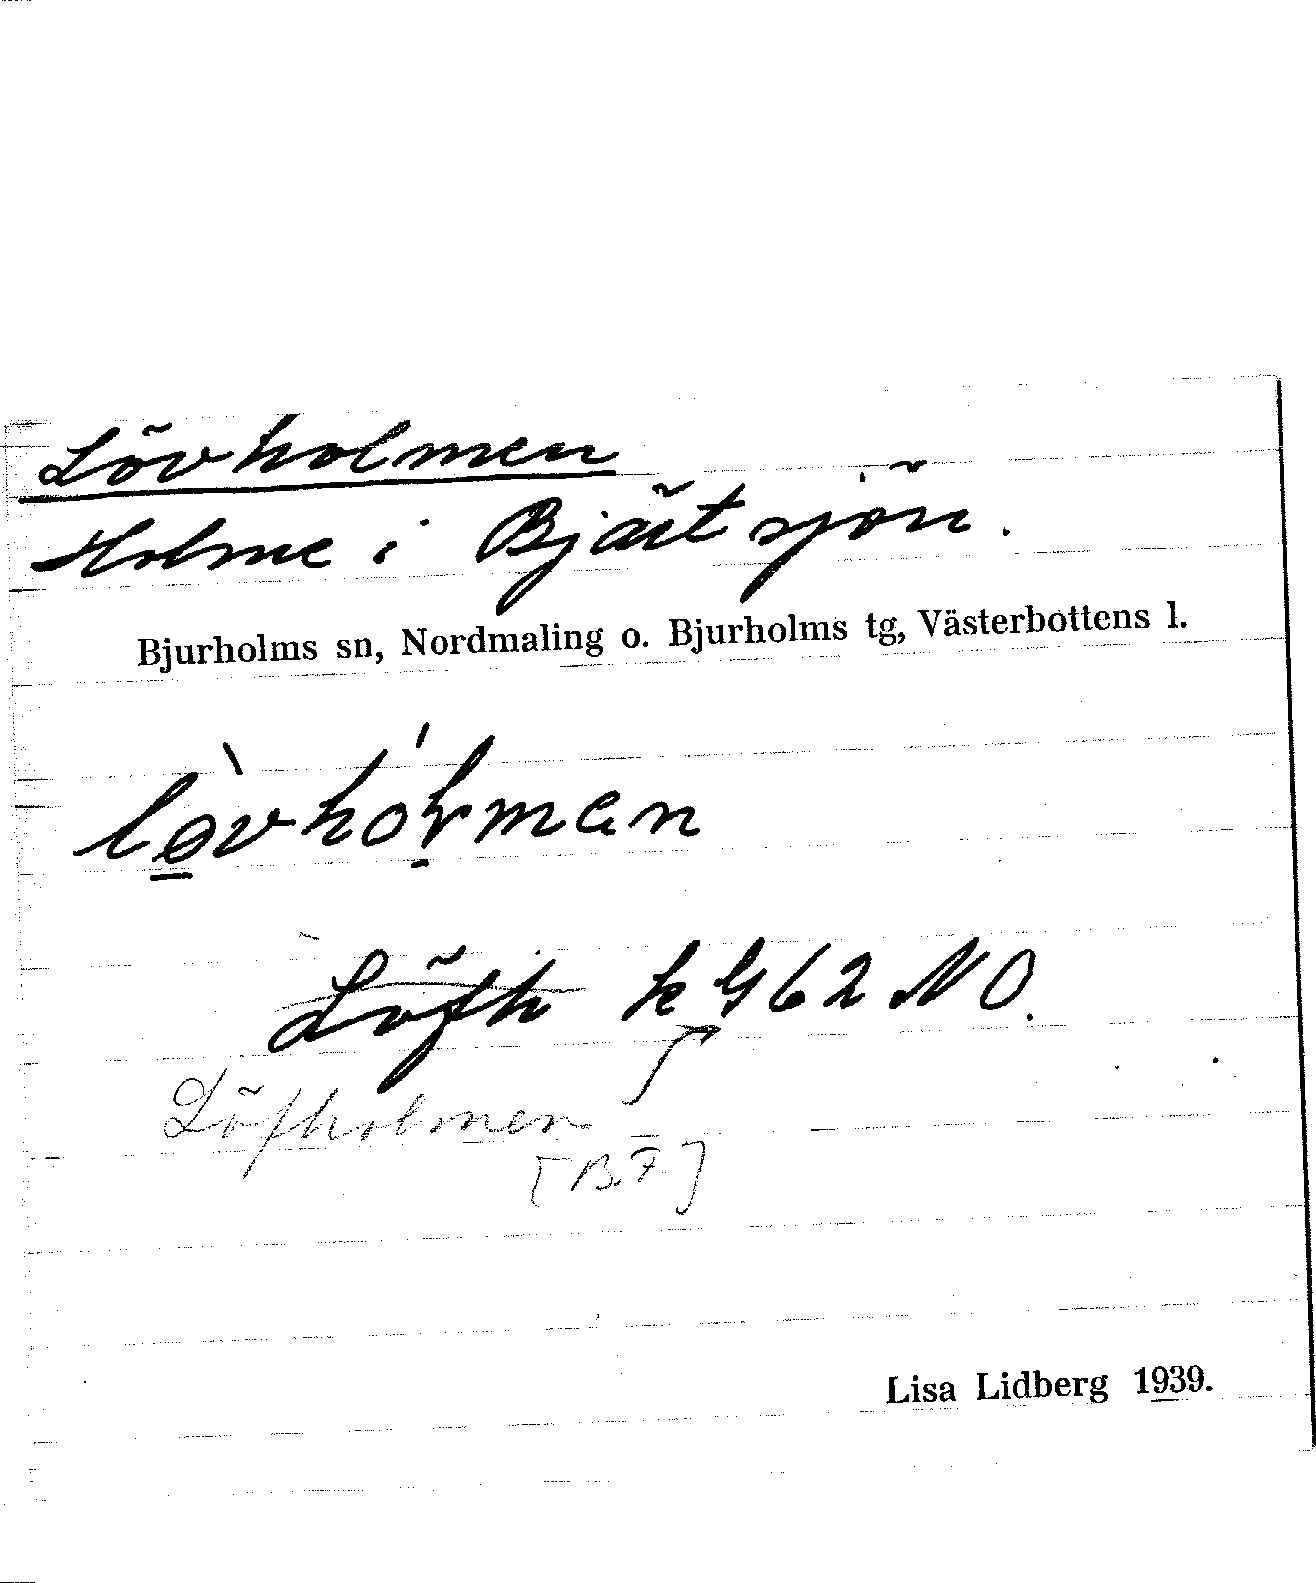 Lövholmen
Holme i Bjästsjön.
Bjurholms sn, Nordmaling o. Bjurholms tg, Västerbottens l.
Löfh k G62 NO.
Löfholmen
[B.F]
Lisa Lidberg 1939.